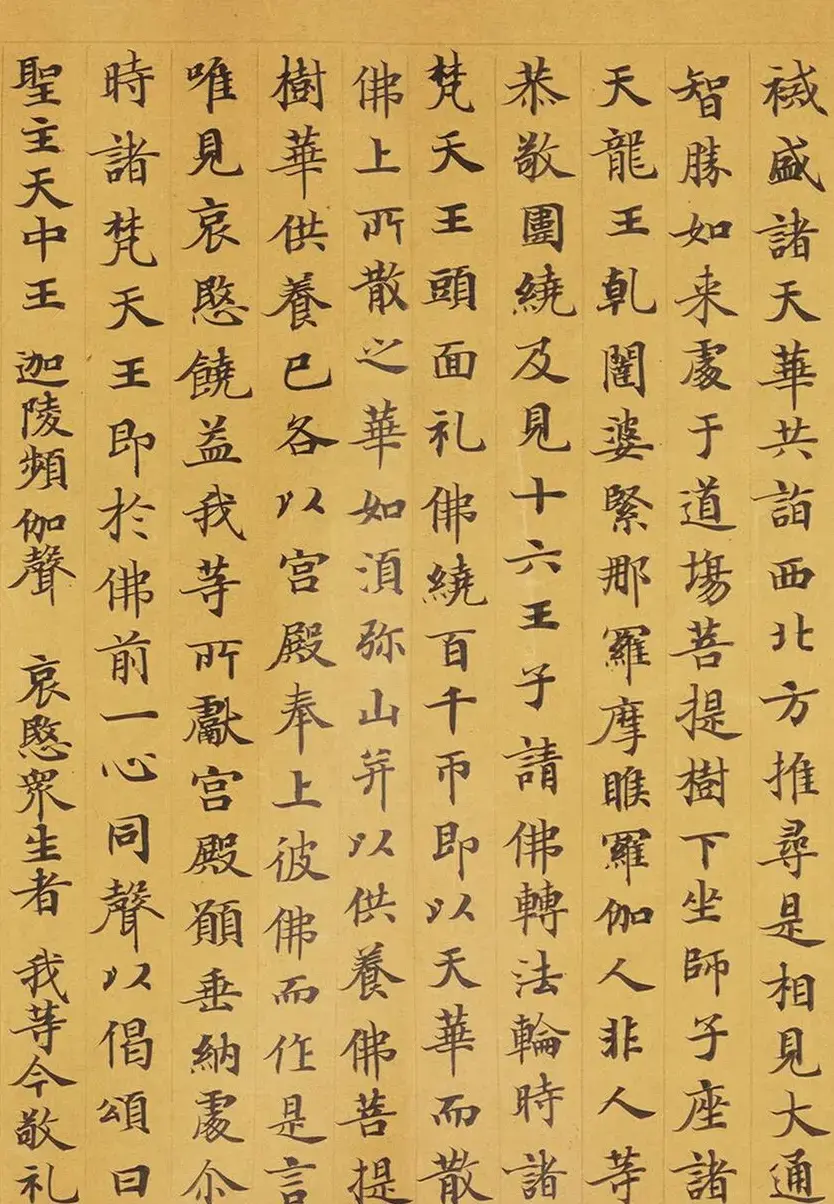 祴盛諸天華共詣西北方推尋是相見大通
智勝如来處于道塲菩提樹下坐師子座諸
天龍王乹闥婆緊那羅摩睺羅伽人非人等
恭敬圍繞及見十六王子請佛轉法輪時諸
梵天王頭面礼佛繞百千帀即以天華而散
佛上所散之華如湏弥山并以供養佛菩提
樹華供養已各以宫殿奉上彼佛而作是言
唯見哀愍饒益我等所獻宫殿願垂納處尒
時諸梵天王即於佛前一心同聲以偈頌曰
聖主天中王 迦陵頻伽聲 哀愍衆生者 我等今敬礼